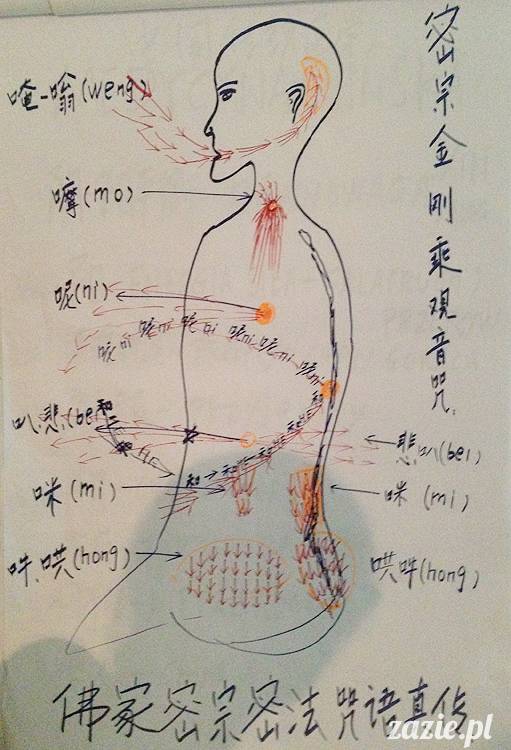 密宗金刚乘观音咒
唵-嗡(weng)
嚤(mo)
呢(ni)
呢ni 呢ni 呢ni 呢ni 呢ni 呢ni
叭.悲(bei
悲叭(bei)
咪(mi)
咪(mi)
吽.哄(hong)
哄吽(hong)
佛家密宗密法咒语真传
zazie.pl